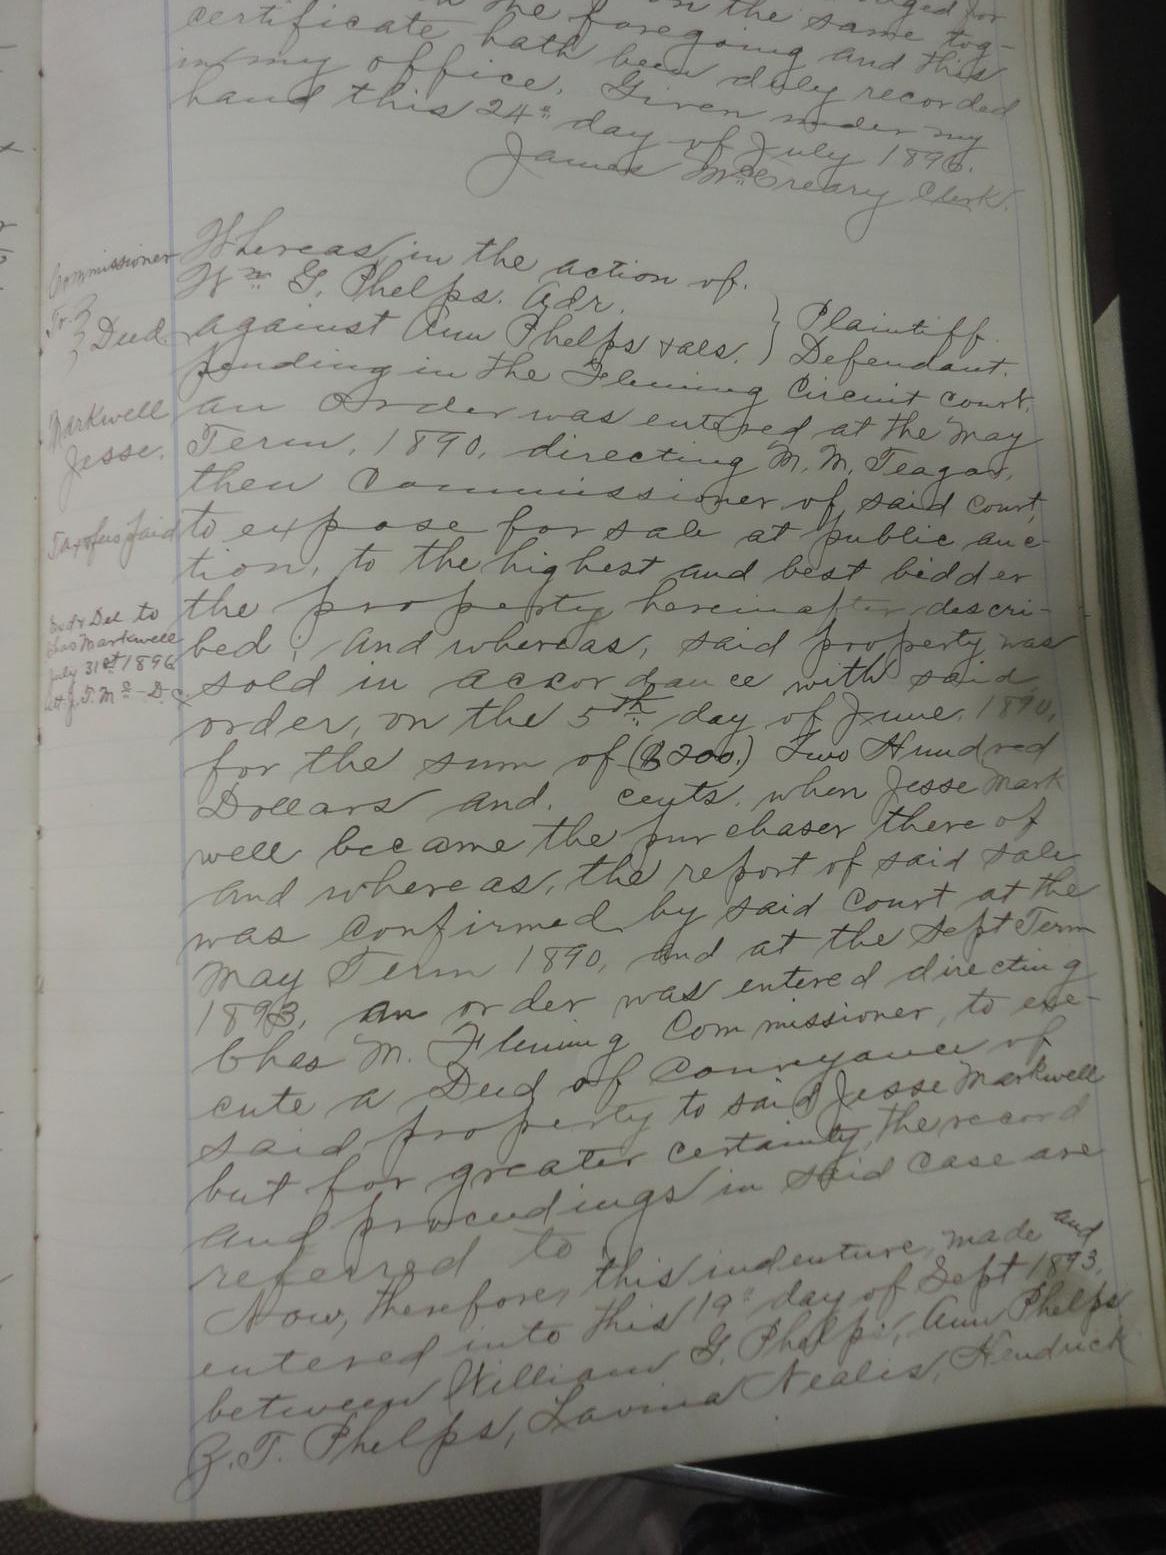 the foregoing on the same tog-
certificate hath been duly recorded
in my office. Given under my
hand this 24" day of July 1896.
James McCreary Clerk.
Commissioner
To } Deed
Markwell
Jesse.
Tax & fees paid
Exd & Del to
Chas Markwell
July 31st 1896
Whereas, in the action of.
Wm G. Phelps. Adr. } Plaintiff.
against Ann Phelps &als. } Defendant.
pending in the Fleming Circuit Court,
an order was entered at the May
Term, 1890, directing M. M. Teagar,
then Commissioner of said Court,
to expose for sale at public auc-
tion, to the highest and best bidder
the property hereinafter descri-
bed; and whereas, said property was
sold in accordance with said
order, on the 5th day of June, 1890,
for the sum of ($200.) Two Hundred
Dollars and. cents. when Jesse Mark
well became the purchaser there of
and where as, the report of said sale
was confirmed by said Court at the
May Term 1890, and at the Sept Term
1893, an order was entered directing
Chas M. Fleming Commissioner, to exe-
cute a Deed of Conveyance of
said property to said Jesse Markwell
but for greater certainty, the record
and proceedings in said case are
referred to
Now, therefore, this indenture, made and
entered into this 19" day of Sept 1893,
between William G. Phelps, Ann Phelps
Z. T. Phelps, Lavina Nealis, Hendrick